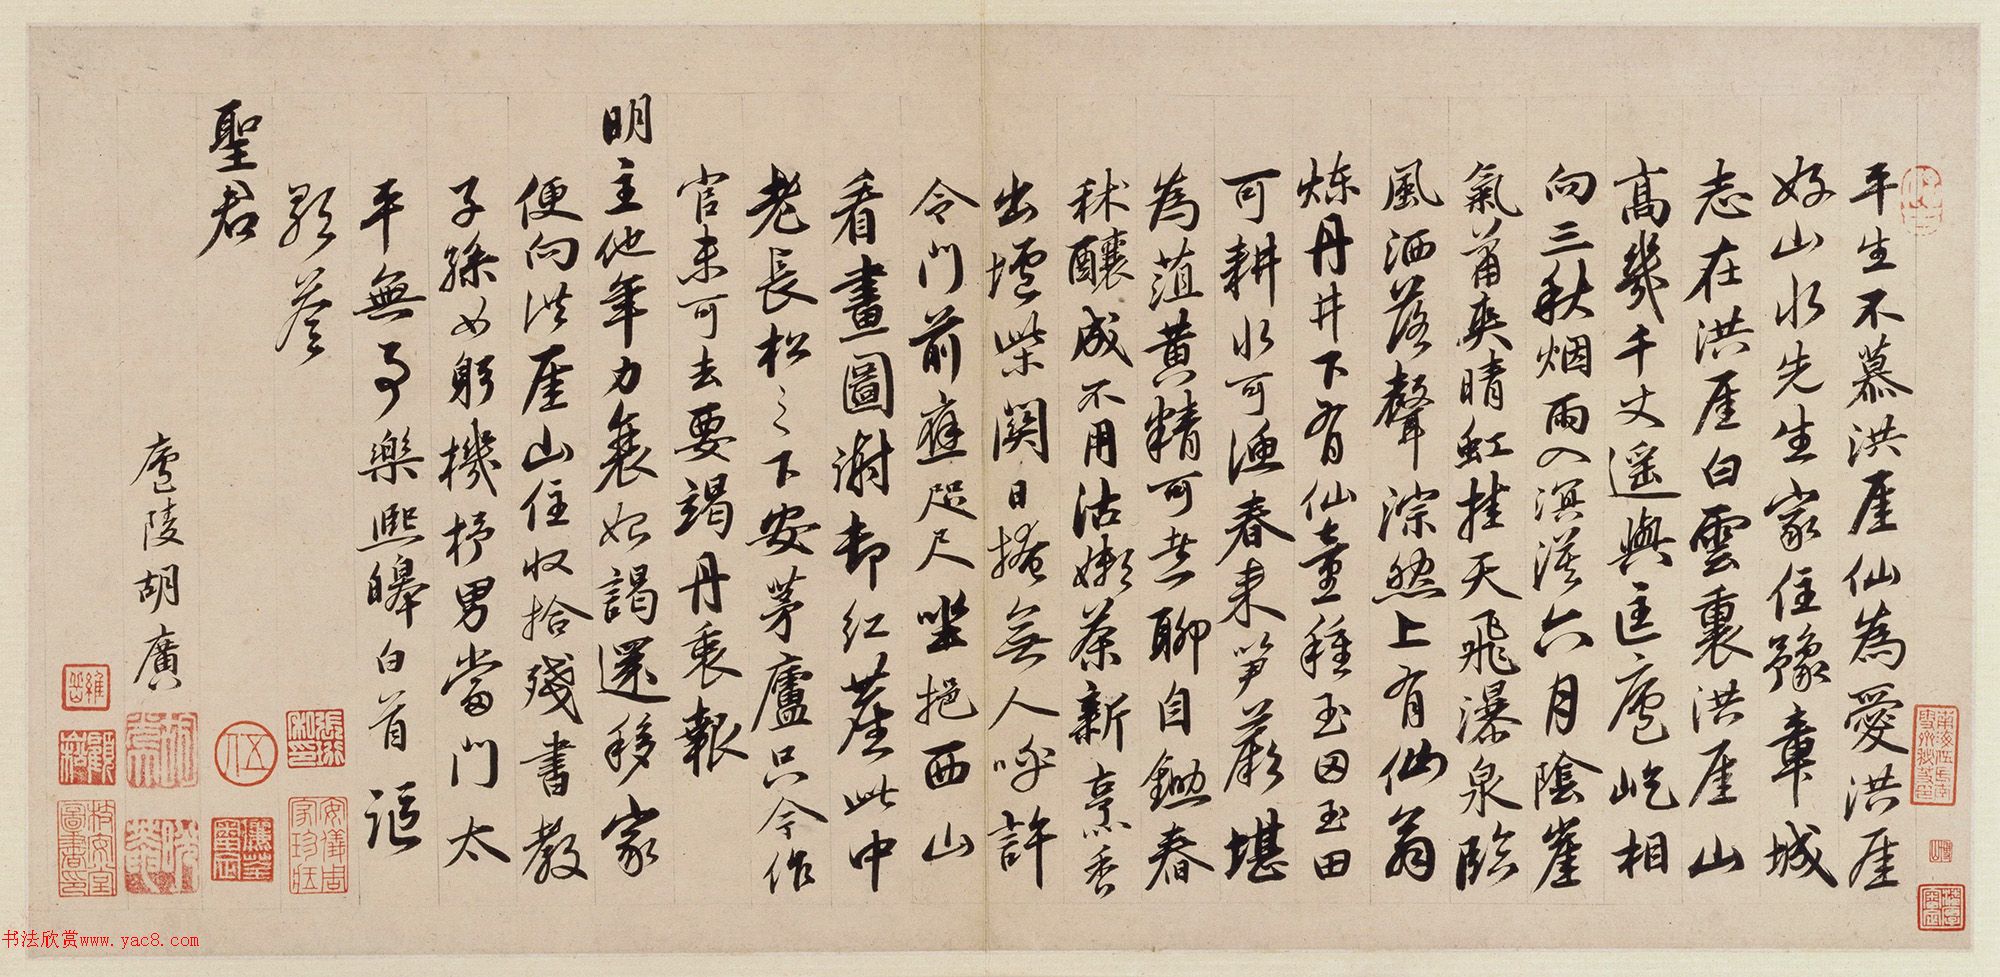 平生不慕洪厓仙為愛洪厓
好山水先生家住豫章城
志在洪厓白雲裏洪厓山
高幾千丈遥與匡廬屹相
向三秋烟雨入溟濛六月陰崖
氣萧爽晴虹挂天飛瀑泉臨
風洒落聲淙然上有仙翁
煉丹井下有仙童種玉田玉田
可耕水可漁春来笋蕨堪
為菹黄精可煮聊自鋤春
秫釀成不用沽嫩茶新烹香
出爐柴関日掩無人呼許
令門前庭咫尺坐挹西山
看畫圖謝却红塵此中
老長松之下安茅廬只今作
官未可去要竭丹衷報
明主他年力衰始謁還移家
便向洪厓山住收拾殘書教
子孫女躬機杼男當門太
平無事樂熙皞白首謳
歌答
聖君
廬陵胡廣
书法欣赏www.yac8.com